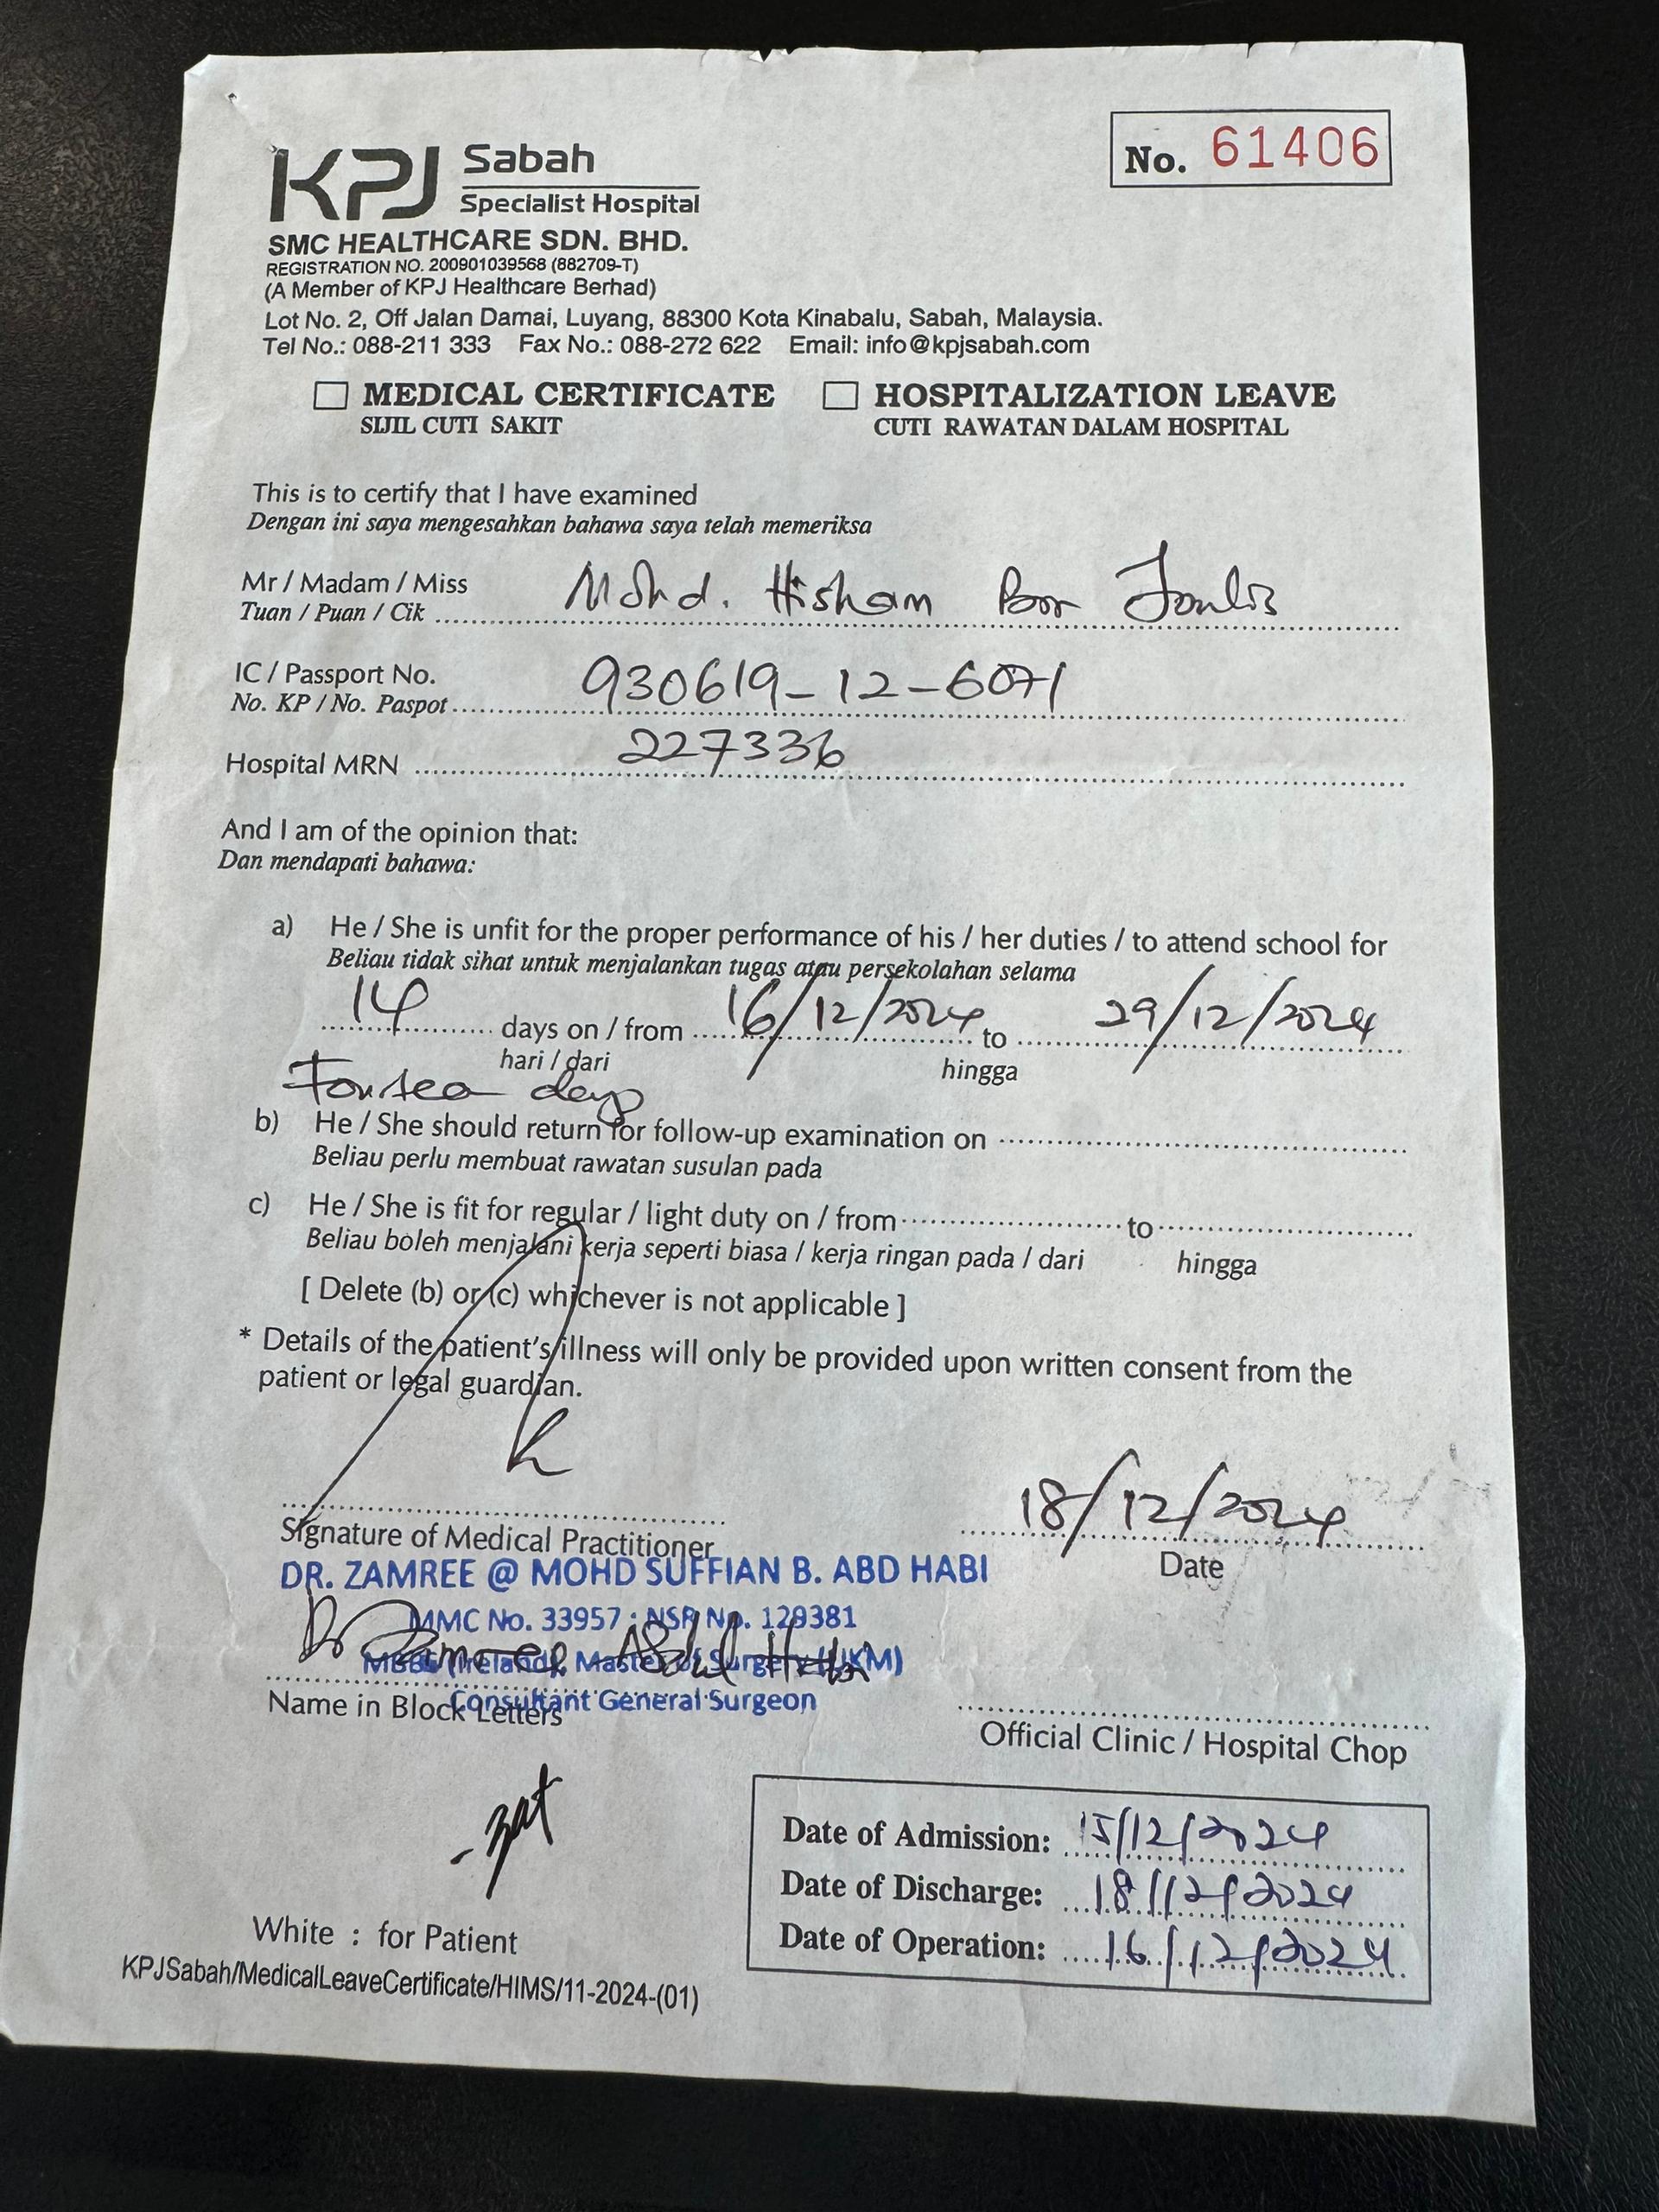 No. 61406
KPJ Sabah
Specialist Hospital
SMC HEALTHCARE SDN. BHD.
REGISTRATION NO. 200901039568 (882709-T)
(A Member of KPJ Healthcare Berhad)
Lot No. 2, Off Jalan Damai, Luyang, 88300 Kota Kinabalu, Sabah, Malaysia.
Tel No.: 088-211 333 Fax No.: 088-272 622 Email: info@kpjsabah.com
MEDICAL CERTIFICATE HOSPITALIZATION LEAVE
SIJIL CUTI SAKIT CUTI RAWATAN DALAM HOSPITAL
This is to certify that I have examined
Dengan ini saya mengesahkan bahawa saya telah memeriksa
Mr / Madam / Miss Mohd. Hisham
Tuan / Puan / Cik
IC / Passport No. 930619-12-6071
No. KP / No. Paspot
Hospital MRN 227336
And I am of the opinion that:
Dan mendapati bahawa:
a) He / She is unfit for the proper performance of his / her duties / to attend school for
Beliau tidak sihat untuk menjalankan tugas atau persekolahan selama
14 days on / from 16/12/2024 to 29/12/2024
hari / dari hingga
days
b) He / She should return for follow-up examination on
Beliau perlu membuat rawatan susulan pada
c) He / She is fit for regular / light duty on / from to
Beliau boleh menjalani kerja seperti biasa / kerja ringan pada / dari hingga
[ Delete (b) or (c) whichever is not applicable ]
* Details of the patient's illness will only be provided upon written consent from the
patient or legal guardian.
18/12/2024
Signature of Medical Practitioner Date
DR. ZAMREE @ MOHD SUFFIAN B. ABD HABI
MMC No. 33957 ; NSR No. 129381
MBBS (Ireland), Master of Surgery (UKM)
Dr Zamree Abdul
Consultant General Surgeon
Name in Block Letters
Official Clinic / Hospital Chop
Date of Admission: 15/12/2024
Date of Discharge: 18/12/2024
Date of Operation: 16/12/2024
White : for Patient
KPJSabah/MedicalLeaveCertificate/HIMS/11-2024-(01)